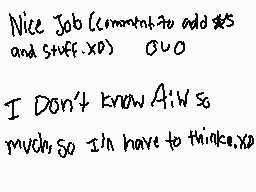 Nice Job (comment to add *s
and stuff.XD) OUO
I Don't know A:W so
much, so I'll have to thinke.XD